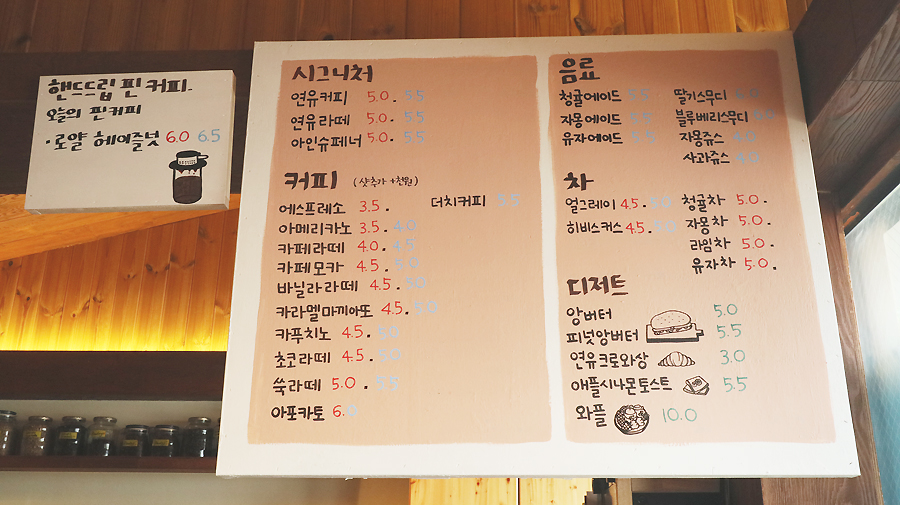 핸드드립 핀 커피.
오늘의 핀커피
·로얄 헤이즐넛 6.0 6.5
시그니처
연유커피 5.0. 5.5
연유라떼 5.0. 5.5
아인슈페너 5.0. 5.5
커피 (샷추가 +천원)
에스프레소 3.5.
더치커피 5.5
아메리카노 3.5. 4.0
카페라떼 4.0. 4.5
카페모카 4.5. 5.0
바닐라라떼 4.5. 5.0
카라멜마끼아또 4.5. 5.0
카푸치노 4.5. 5.0
초코라떼 4.5. 5.0
쑥라떼 5.0. 5.5
아포카토 6.
음료
청귤에이드 5.5
자몽에이드 5.5
유자에이드 5.5
딸기스무디
블루베리스무디
자몽쥬스
사과쥬스
차
얼그레이 4.5. 5.0
히비스커스 4.5. 5.0
청귤차 5.0.
자몽차 5.0.
라임차 5.0.
유자차 5.0.
디저트
앙버터 5.0
피넛앙버터 5.5
연유크로와상 3.0
애플시나몬토스트 5.5
와플 10.0